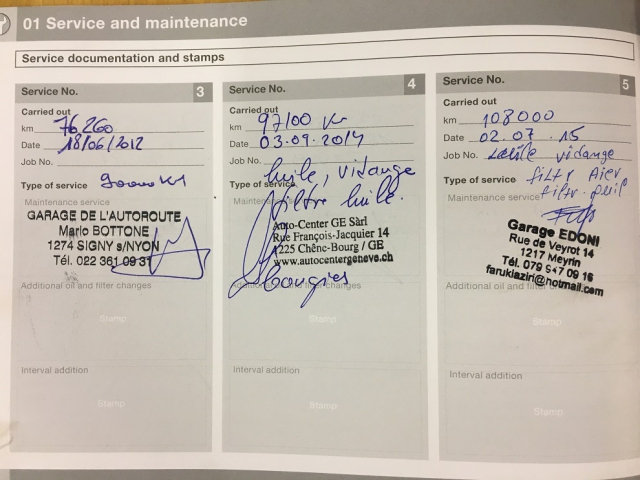 01 Service and maintenance
Service documentation and stamps
Service No. 3
Carried out
km 76260
Date 18/06/2012
Job No.
Type of service
Maintenance service
GARAGE DE L'AUTOROUTE
Mario BOTTONE
1274 SIGNY s/NYON
Tél. 022 361 09 31
Additional oil and filter changes
Stamp
Interval addition
Stamp
Service No. 4
Carried out
km 97100 Km
Date 03.09.2014
Job No.
huile, vidange
Type of service
filtre huile.
Auto-Center GE Sàrl
Rue François-Jacquier 14
1225 Chêne-Bourg / GE
www.autocentergeneve.ch
bougies
Stamp
Interval addition
Stamp
Service No. 5
Carried out
km 108000
Date 02.07.15
Job No. vidange
Type of service filtr Aier
filtr.
Maintenance service
Garage EDONI
Rue de Veyrot 14
1217 Meyrin
Tél. 079 947 09 16
faruklaziri@hotmail.com
Additional oil and
Stamp
Interval addition
Stamp